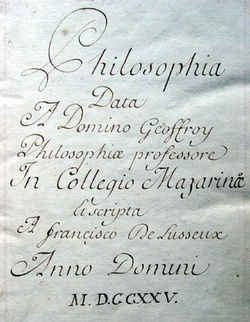 Philosophia
Data
A Domino Geoffroy
Philosophiæ professore
In Collegio Mazarinæ
Et scripta
A francisco De Lusseux
Anno Domini
M. D.CCXXV.